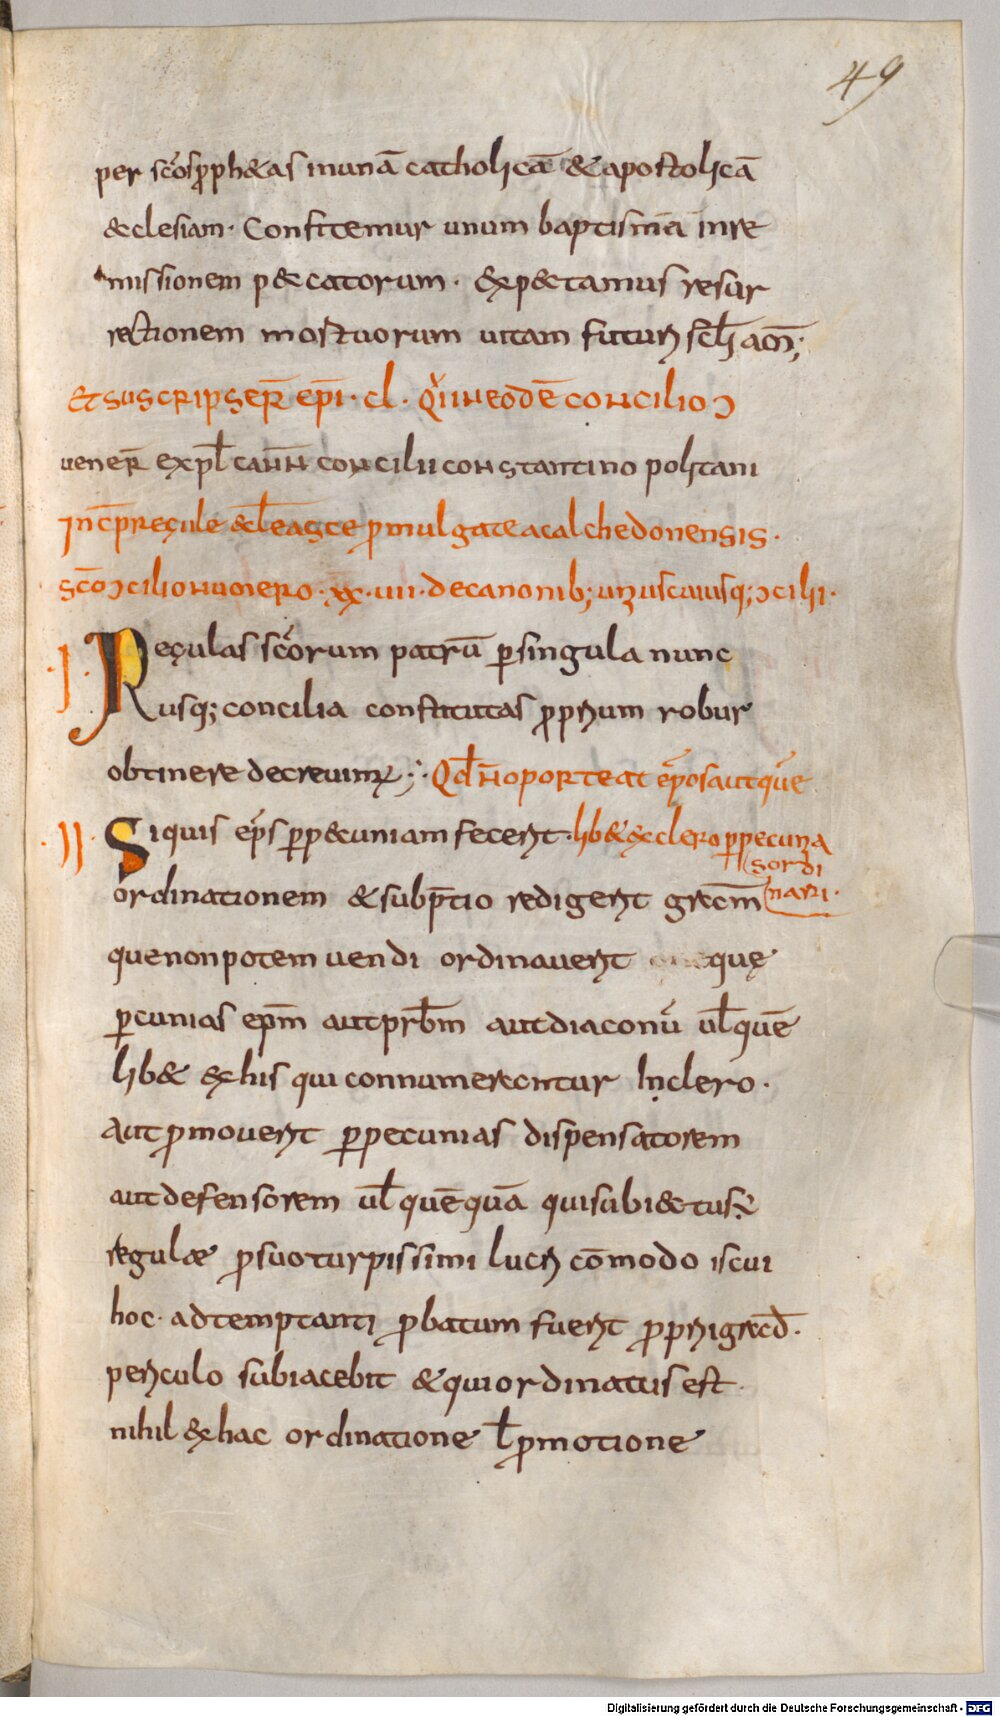 49
per sc̄os ꝓph&as in unā catholicā & apostolicā
&clesiam· Confitemur unum baptisma in re
missionem p&catorum· Exp&tamus resur
rectionem mortuorum uitam futuri sclī am̄;
Et suscripseꝝ ep̄i· cl· Qui in eodē concilio ↄ
uener̄ expl̄ cann̄ concilii constantinopolitani
Inc̄p regule &cl̄eastice ꝓmulgate a calchedonensis·
sc̄o ↄcilio numero· xx·uii· de canonib; uniuscuiusq; ↄcilii·
I· Regulas sc̄orum patrū ꝑ singula nunc
usq; concilia constitutas ꝓprium robur
obtinere decreuim;·
Qd̄ n̄ oporteat ep̄os aut quē
II· Si quis ep̄s ꝑ p&cuniam fecerit·
lib& ex clero ꝑ pecunia
s ordi
nari·
ordinationem & sub p̄tio redigerit grec̄m
que non potem uendi ordinauerit queꝗ
ꝑcunias ep̄m aut prb̄m aut diaconū ul̄ quē
lib& ex his qui connumerentur In clero·
Aut ꝓmouerit ꝑ pecunias dispensatorem
aut defensorem ul̄ quēquā qui subi&tus ÷
regulæ ꝓ suo turpissimi lucri cōmodo is cui
hoc· adtemptanti ꝓbatum fuerit ꝓprii grec̄d·
periculo subiacebit & qui ordinatus est·
nihil ex hac ordinatione l̄ ꝓmotione
Digitalisierung gefördert durch die Deutsche Forschungsgemeinschaft - DFG